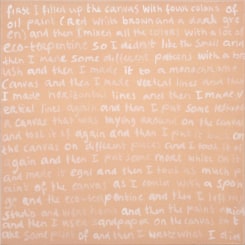 first I filled up the canvas with four colors of
oil paint (red white brown and a dark gre
en) and then I mixed all the colors with a lot of
eco-terpentine so I didn't like the smell and
then I made some different patterns with a br
ush and then I made it to a monochrome
canvas and then I made vertical lines and then
I made horizontal lines and then I made v
ertical lines again and then I put some
a canvas that was laying around on the canvas
and took it of again and then I put it
the canvas on different places and I took it of
again and then I put some more white on it
and made it even and then I took as much p
aint of the canvas as I could with a spon
ge and the eco-terpentine and then I left my
studio and went home and then the paint dried
and then I used sandpaper on the canvas to t
ake some paint of and then I wrote what I did